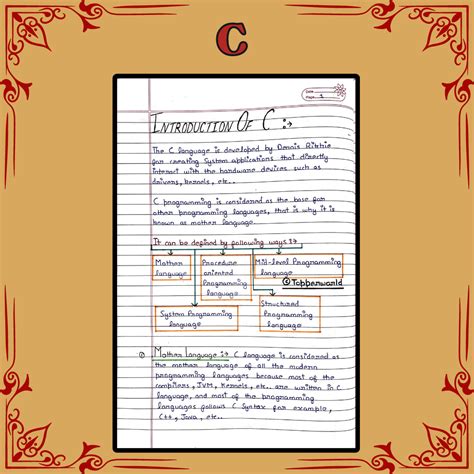 C
Date
Page 1
INTRODUCTION OF C :→
The C language is developed by Dennis Ritchie
for creating System applications that directly
interact with the hardware devices such as
drivers, kernels, etc..
C programming is considered as the base for
other programming languages, that is why it is
known as mother language.
It can be defined by following ways :→
Mother Procedure Mid-level Programming
language oriented language
Programming © Topperworld
language
Structured
System Programming Programming
language language
① Mother Language :→ C language is considered as
the mother language of all the modern
programming languages because most of the
compilers, JVMs, Kernels, etc.. are written in C
language, and most of the programming
languages follows C Syntax for example,
C++, Java, etc..